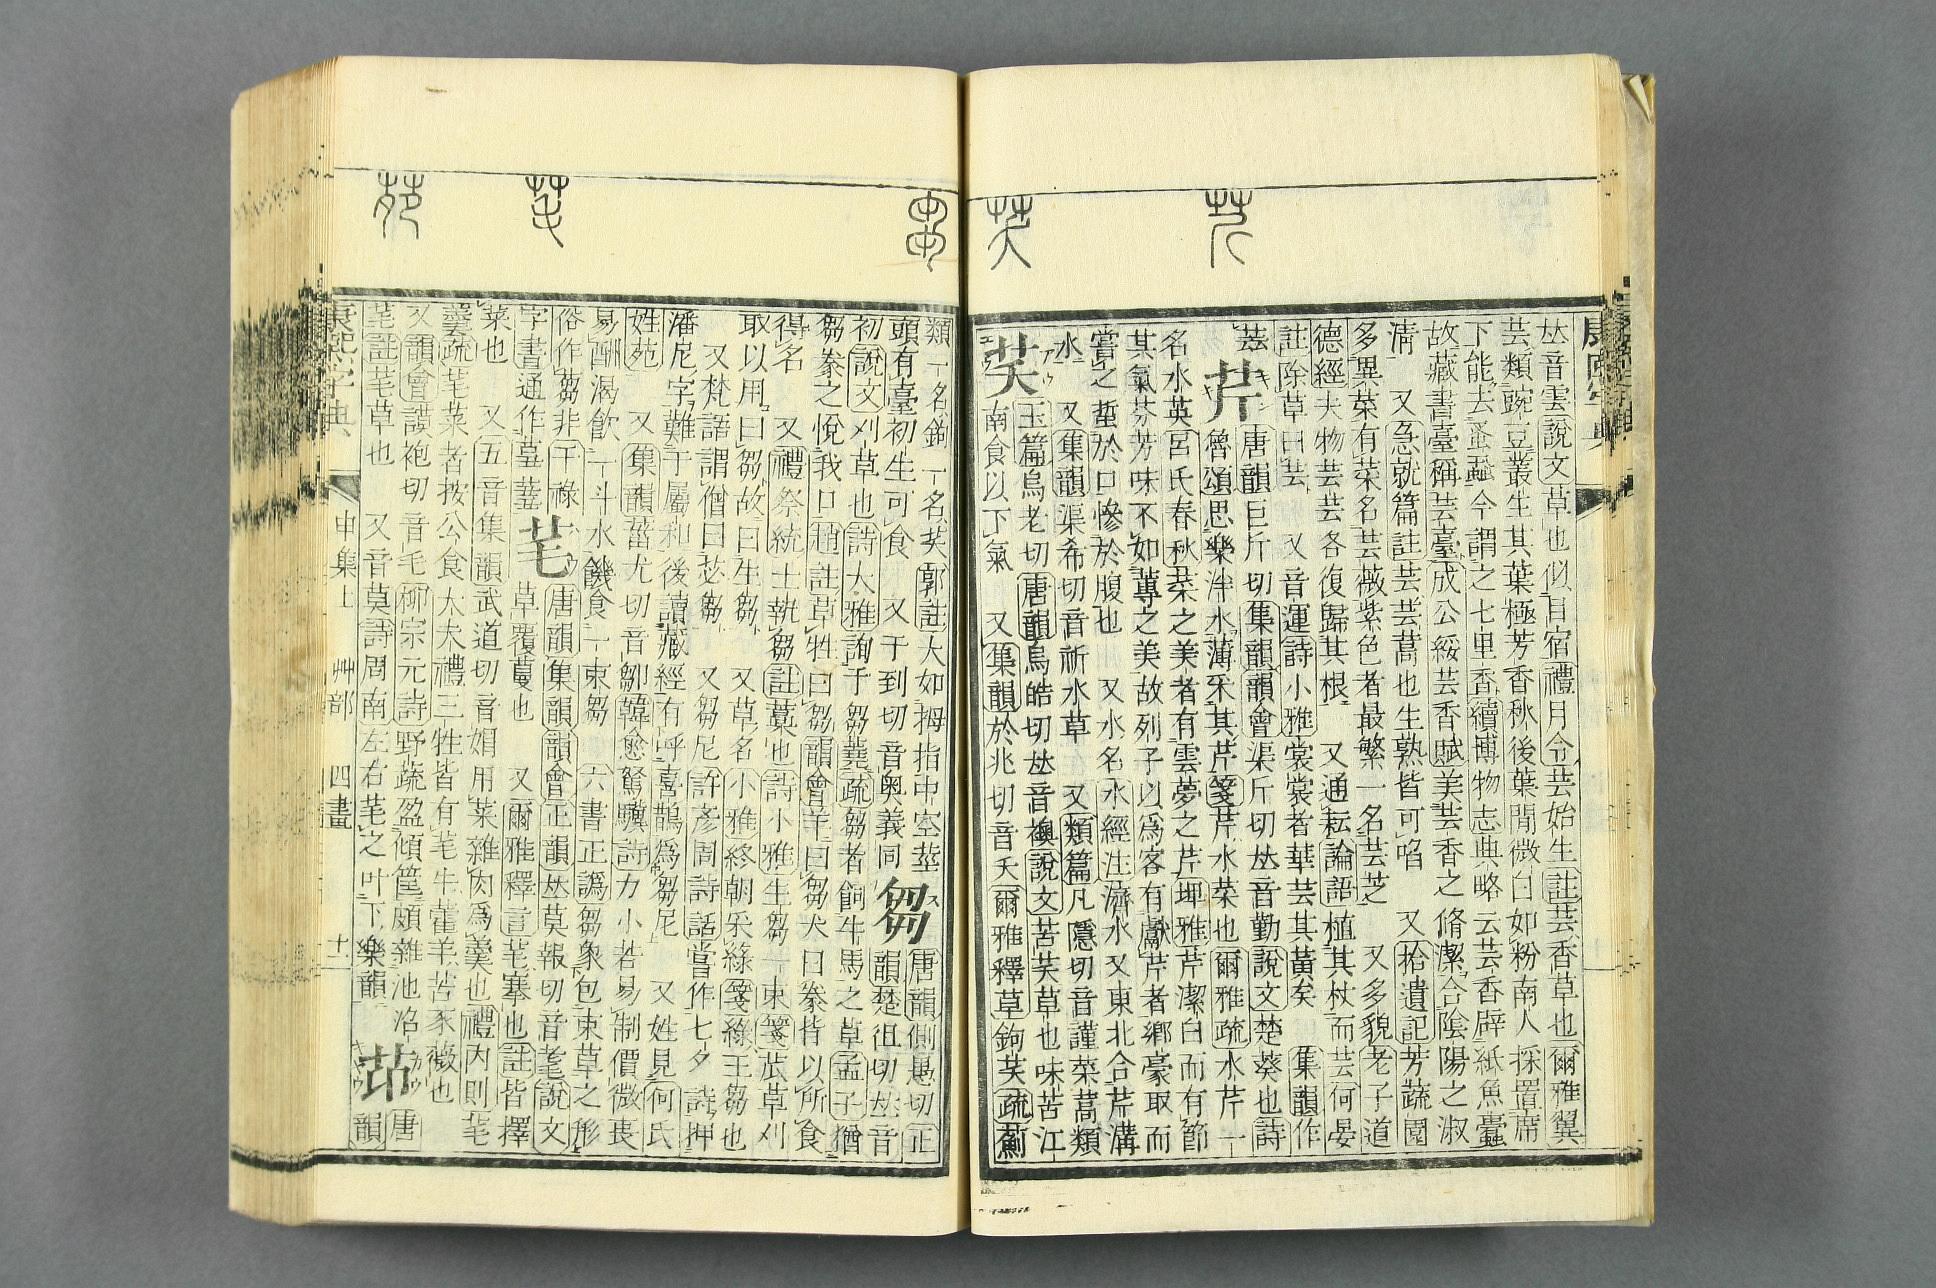 𠀤音雲說文草也似目宿禮月令芸始生註芸香草也爾雅翼
芸類豌豆叢生其葉極芳香秋後葉閒微白如粉南人採置席
下能去蚤蝨今謂之七里香續博物志典略云芸香辟紙魚蠹
故藏書臺稱芸臺成公綏芸香賦美芸香之脩潔合陰陽之淑
淸 又急就篇註芸芸蒿也生熟皆可啗 又拾遺記芳蔬園
多異菜有菜名芸薇紫色者最繁一名芸芝 又多貌老子道
德經夫物芸芸各復歸其根 又通耘論語植其杖而芸何晏
註除草曰芸 又音運詩小雅裳裳者華芸其黃矣 集韻作
蕓 芹 キン 唐韻巨斤切集韻韻會渠斤切𠀤音勤說文楚葵也詩
魯頌思樂泮水薄采其芹箋芹水菜也爾雅疏水芹一
名水英呂氏春秋菜之美者有雲夢之芹埤雅芹潔白而有節
其氣芬芳味不如蓴之美故列子以爲客有獻芹者鄉豪取而
嘗之蜇於口慘於腹也 又水名水經注濟水又東北合芹溝
水 又集韻渠希切音祈水草 又類篇凡隱切音謹菜蒿類
芺 アウ 玉篇烏老切唐韻烏皓切𠀤音襖說文苦芺草也味苦江
南食以下氣 又集韻於兆切音夭爾雅釋草鉤芺疏薊
類一名鉤一名芺郭註大如拇指中空莖
頭有臺初生可食 又于到切音奧義同 芻 ス 唐韻側愚切正
韻楚徂切𠀤音
初說文刈草也詩大雅詢于芻蕘疏芻者飼牛馬之草孟子猶
芻豢之悅我口趙註草牲曰芻韻會羊曰芻犬曰豢皆以所食
得名 又禮祭統士執芻註藁也詩小雅生芻一束箋茷草刈
取以用曰芻故曰生芻 又草名小雅終朝采綠箋綠王芻也
又梵語謂僧曰苾芻 又芻尼許彥周詩話嘗作七夕詩押
潘尼字難于屬和後讀藏經有呼喜鵲爲芻尼 又姓見何氏
姓苑 又集韻葘尤切音鄒韓愈駑驥詩力小若易制價微良
易酬渴飮一斗水饑食一束芻 六書正譌芻象包束草之形
俗作蒭非干祿
字書通作𦵔𦵩 芼 唐韻集韻韻會正韻𠀤莫報切音耄說文
草覆蔓也 又爾雅釋言芼搴也註皆擇
菜也 又五音集韻武道切音媢用菜雜肉爲羹也禮內則芼
羹疏芼菜者按公食大夫禮三牲皆有芼牛藿羊苦豕薇也
又韻會謨袍切音毛柳宗元詩野蔬盈傾筐頗雜池沼
芼註芼草也 又音莫詩周南左右芼之叶下樂韻 茆 唐
韻
康熙字典 申集上 艸部 四畫 十一